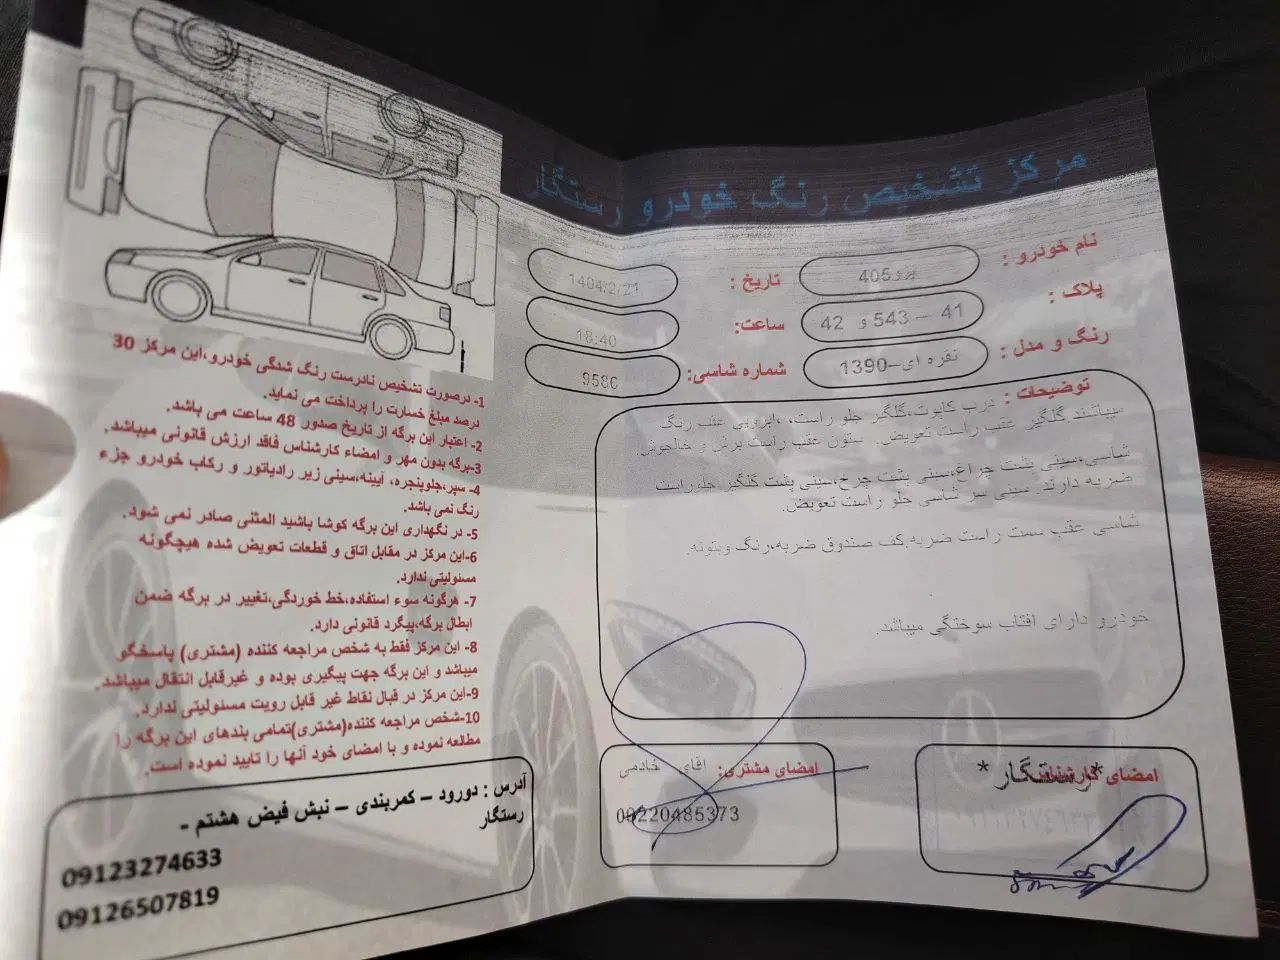 مرکز تشخیص رنگ خودرو رستگار
نام خودرو : پژو405
تاریخ : 1404/2/21
پلاک : 41 – 543 و 42
ساعت: 18:40
رنگ و مدل : نقره ای–1390
شماره شاسی:
توضیحات : درب کاپوت،گلگیر جلو راست، عقب رنگ
میباشند.گلگیر عقب راست تعویض. ستون عقب راست برش و خالجوش
شاسی،سینی پشت چراغ،سینی پشت چرخ،سینی پشت گلگیر جلوراست
ضربه دارند. سینی سر شاسی جلو راست تعویض.
شاسی عقب سمت راست ضربه.کف صندوق ضربه،رنگ وبتونه.
خودرو دارای افتاب سوختگی میباشد.
امضای کارشناس
*رستگار*
امضای مشتری: اقای خادمی
09220485373
1- درصورت تشخیص نادرست رنگ شدگی خودرو،این مرکز 30
درصد مبلغ خسارت را پرداخت می نماید.
2- اعتبار این برگه از تاریخ صدور 48 ساعت می باشد.
3-برگه بدون مهر و امضاء کارشناس فاقد ارزش قانونی میباشد.
4- سپر،جلوپنجره، آیینه،سینی زیر رادیاتور و رکاب خودرو جزء
رنگ نمی باشد.
5- در نگهداری این برگه کوشا باشید المثنی صادر نمی شود.
6-این مرکز در مقابل اتاق و قطعات تعویض شده هیچگونه
مسئولیتی ندارد.
7- هرگونه سوء استفاده،خط خوردگی،تغییر در برگه ضمن
ابطال برگه،پیگرد قانونی دارد.
8- این مرکز فقط به شخص مراجعه کننده (مشتری) پاسخگو
میباشد و این برگه جهت پیگیری بوده و غیرقابل انتقال میباشد.
9-این مرکز در قبال نقاط غیر قابل رویت مسئولیتی ندارد.
10-شخص مراجعه کننده(مشتری)تمامی بندهای این برگه را
مطالعه نموده و با امضای خود آنها را تایید نموده است.
آدرس : دورود – کمربندی – نبش فیض هشتم -
رستگار
09123274633
09126507819